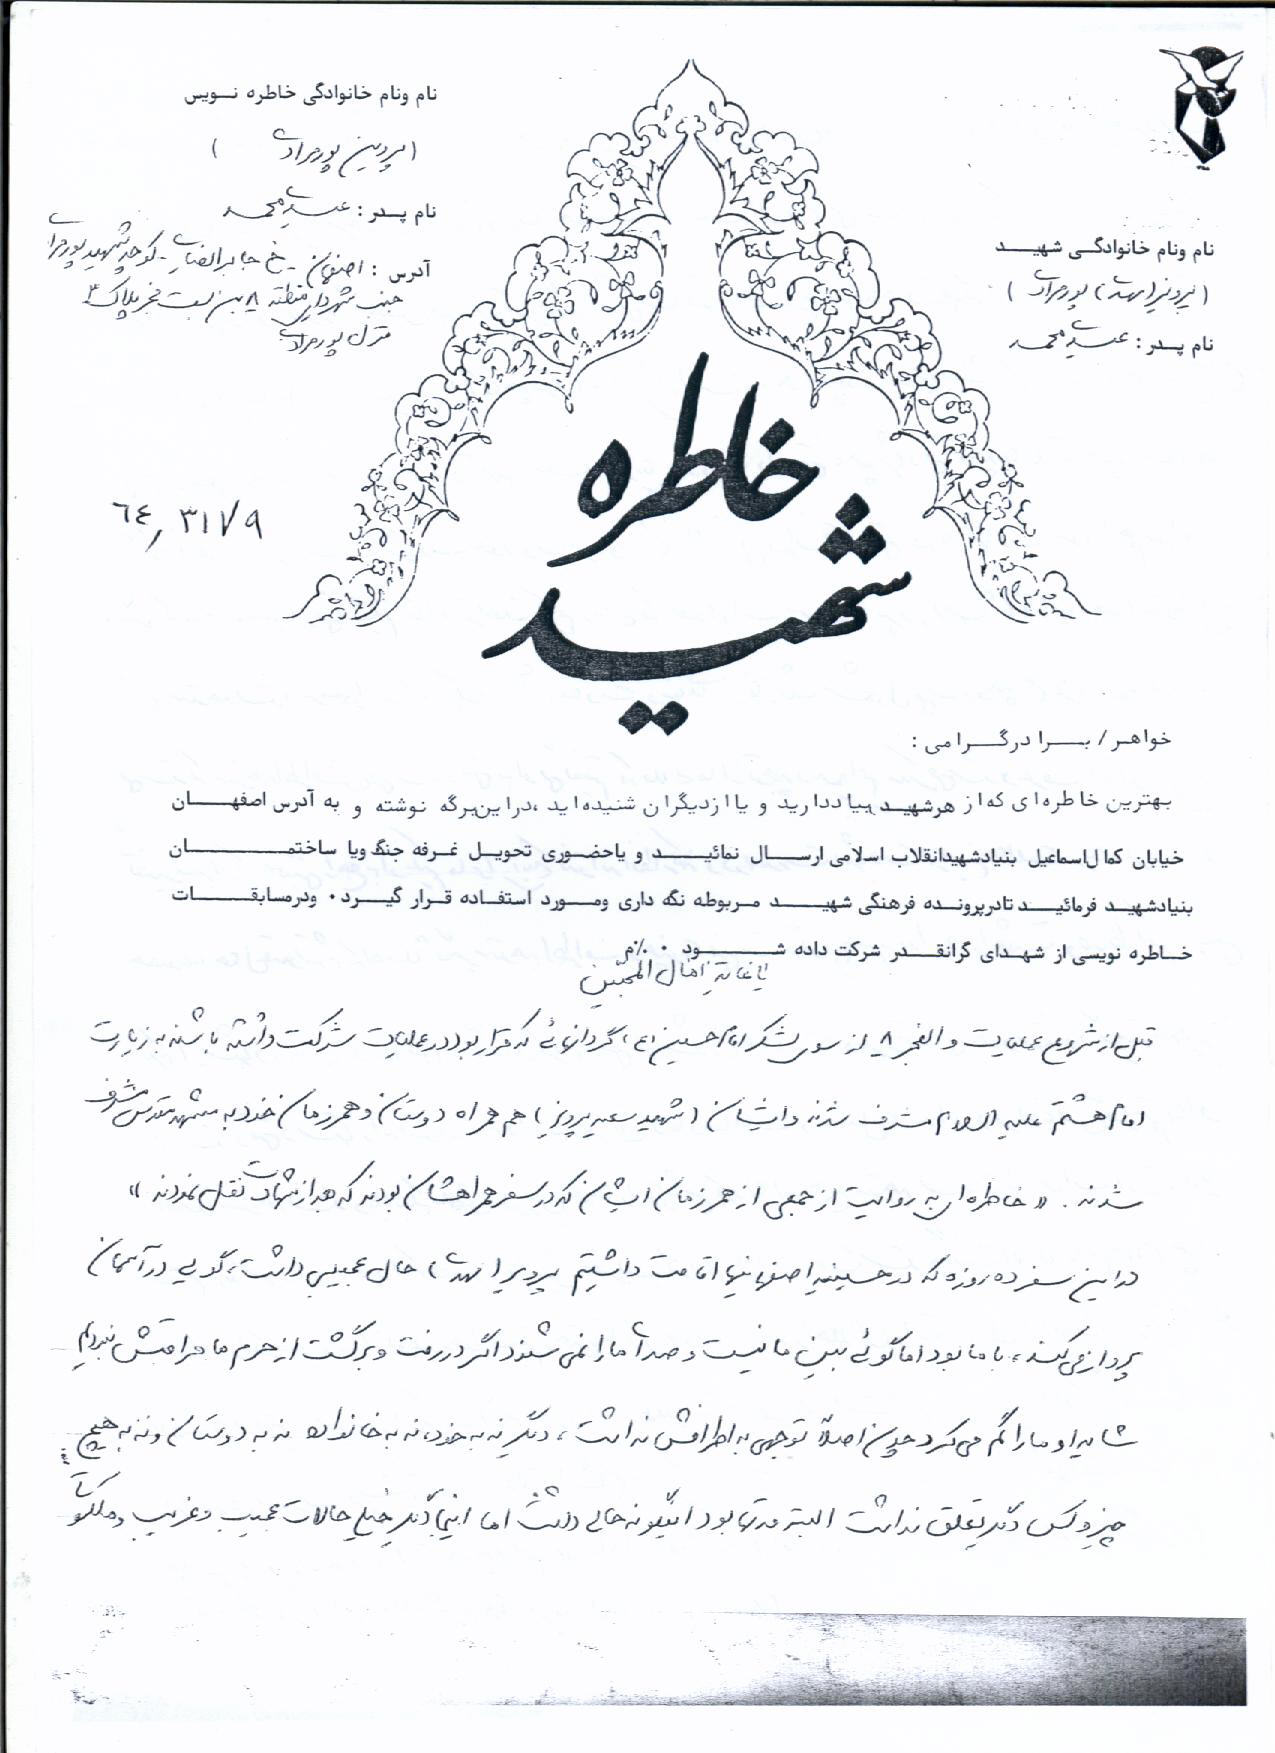 نام ونام خانوادگی خاطره نویس
(پروین پورمرادی)
نام پدر : عیدی محمد
آدرس : اصفهان - خ جابر انصاری - کوچه شهید پورمرادی
جنب شهرداری منطقه ۸ بن بست فجر پلاک ۳
منزل پورمرادی
نام ونام خانوادگی شهید
(پرویز (مهدی) پورمرادی)
نام پدر : عیدی محمد
خاطره
شهید
٦٤,٣١١/٩
خواهر / برادر گرامی :
بهترین خاطره‌ای که از هر شهید بیاد دارید و یا از دیگران شنیده اید ، در این برگه نوشته و به آدرس اصفهان
خیابان کمال اسماعیل بنیاد شهید انقلاب اسلامی ارسال نمائید و یا حضوری تحویل غرفه جنگ ویا ساختمان
بنیاد شهید فرمائید تا در پرونده فرهنگی شهید مربوطه نگه داری و مورد استفاده قرار گیرد ۰ ودر مسابقات
خاطره نویسی از شهدای گرانقدر شرکت داده شود ۰ ٪م
یا غایة آمال المحبین
قبل از شروع عملیات والفجر ۸ از سوی لشکر امام حسین (ع) گردانهائی که قرار بود در عملیات شرکت داشته باشند به زیارت
امام هشتم علیه السلام مشرف شدند و ایشان (شهید سعید پرویز) هم همراه دوستان و همرزمان خود به مشهد مقدس مشرف
شدند . «خاطره ای به روایت از جمعی از همرزمان ایشان که در سفر همراهشان بودند که بعد از شهادت نقل نمودند»
در این سفر ده روزه که در حسینیه اصفهانیها اقامت داشتیم پرویز (مهدی) حال عجیبی داشت، گویی در آسمان
پرواز می کند، با ما بود اما گوئی بین ما نیست و صدای ما را نمی شنود اگر در رفت و برگشت از حرم ما مراقبش نبودیم
شاید او ما را گم می کرد چون اصلاً توجهی به اطرافش نداشت ، دیگر نه به خود، نه به خانواده نه به دوستان و نه به هیچ
چیز و کس دیگر تعلق نداشت البته مدتها بود اینگونه حالی داشت اما اینجا دیگر خیلی حالات عجیب و غریب و ملکوتی